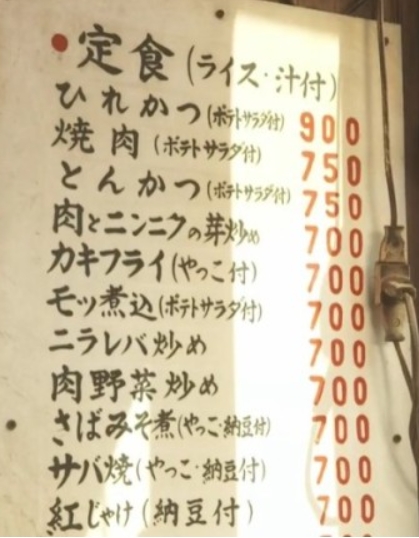 定食(ライス・汁付)
ひれかつ(ポテトサラダ付) 900
焼肉(ポテトサラダ付) 750
とんかつ(ポテトサラダ付) 750
肉とニンニクの芽炒め 700
カキフライ(やっこ付) 700
モツ煮込(ポテトサラダ付) 700
ニラレバ炒め 700
肉野菜炒め 700
さばみそ煮(やっこ・納豆付) 700
サバ焼(やっこ・納豆付) 700
紅じゃけ(納豆付) 700